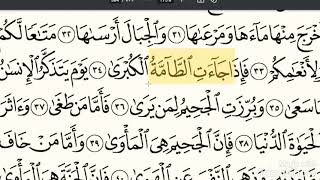 خْرَجَ مِنْهَا مَآءَهَا وَمَرْعَىٰهَا ٣١ وَٱلْجِبَالَ أَرْسَىٰهَا ٣٢ مَتَٰعًا لَّكُمْ
لِأَنْعَٰمِكُمْ ٣٣ فَإِذَا جَآءَتِ ٱلطَّآمَّةُ ٱلْكُبْرَىٰ ٣٤ يَوْمَ يَتَذَكَّرُ ٱلْإِنسَٰنُ
مَا سَعَىٰ ٣٥ وَبُرِّزَتِ ٱلْجَحِيمُ لِمَن يَرَىٰ ٣٦ فَأَمَّا مَن طَغَىٰ ٣٧ وَءَاثَرَ
ٱلْحَيَوٰةَ ٱلدُّنْيَا ٣٨ فَإِنَّ ٱلْجَحِيمَ هِىَ ٱلْمَأْوَىٰ ٣٩ وَأَمَّا مَنْ خَافَ